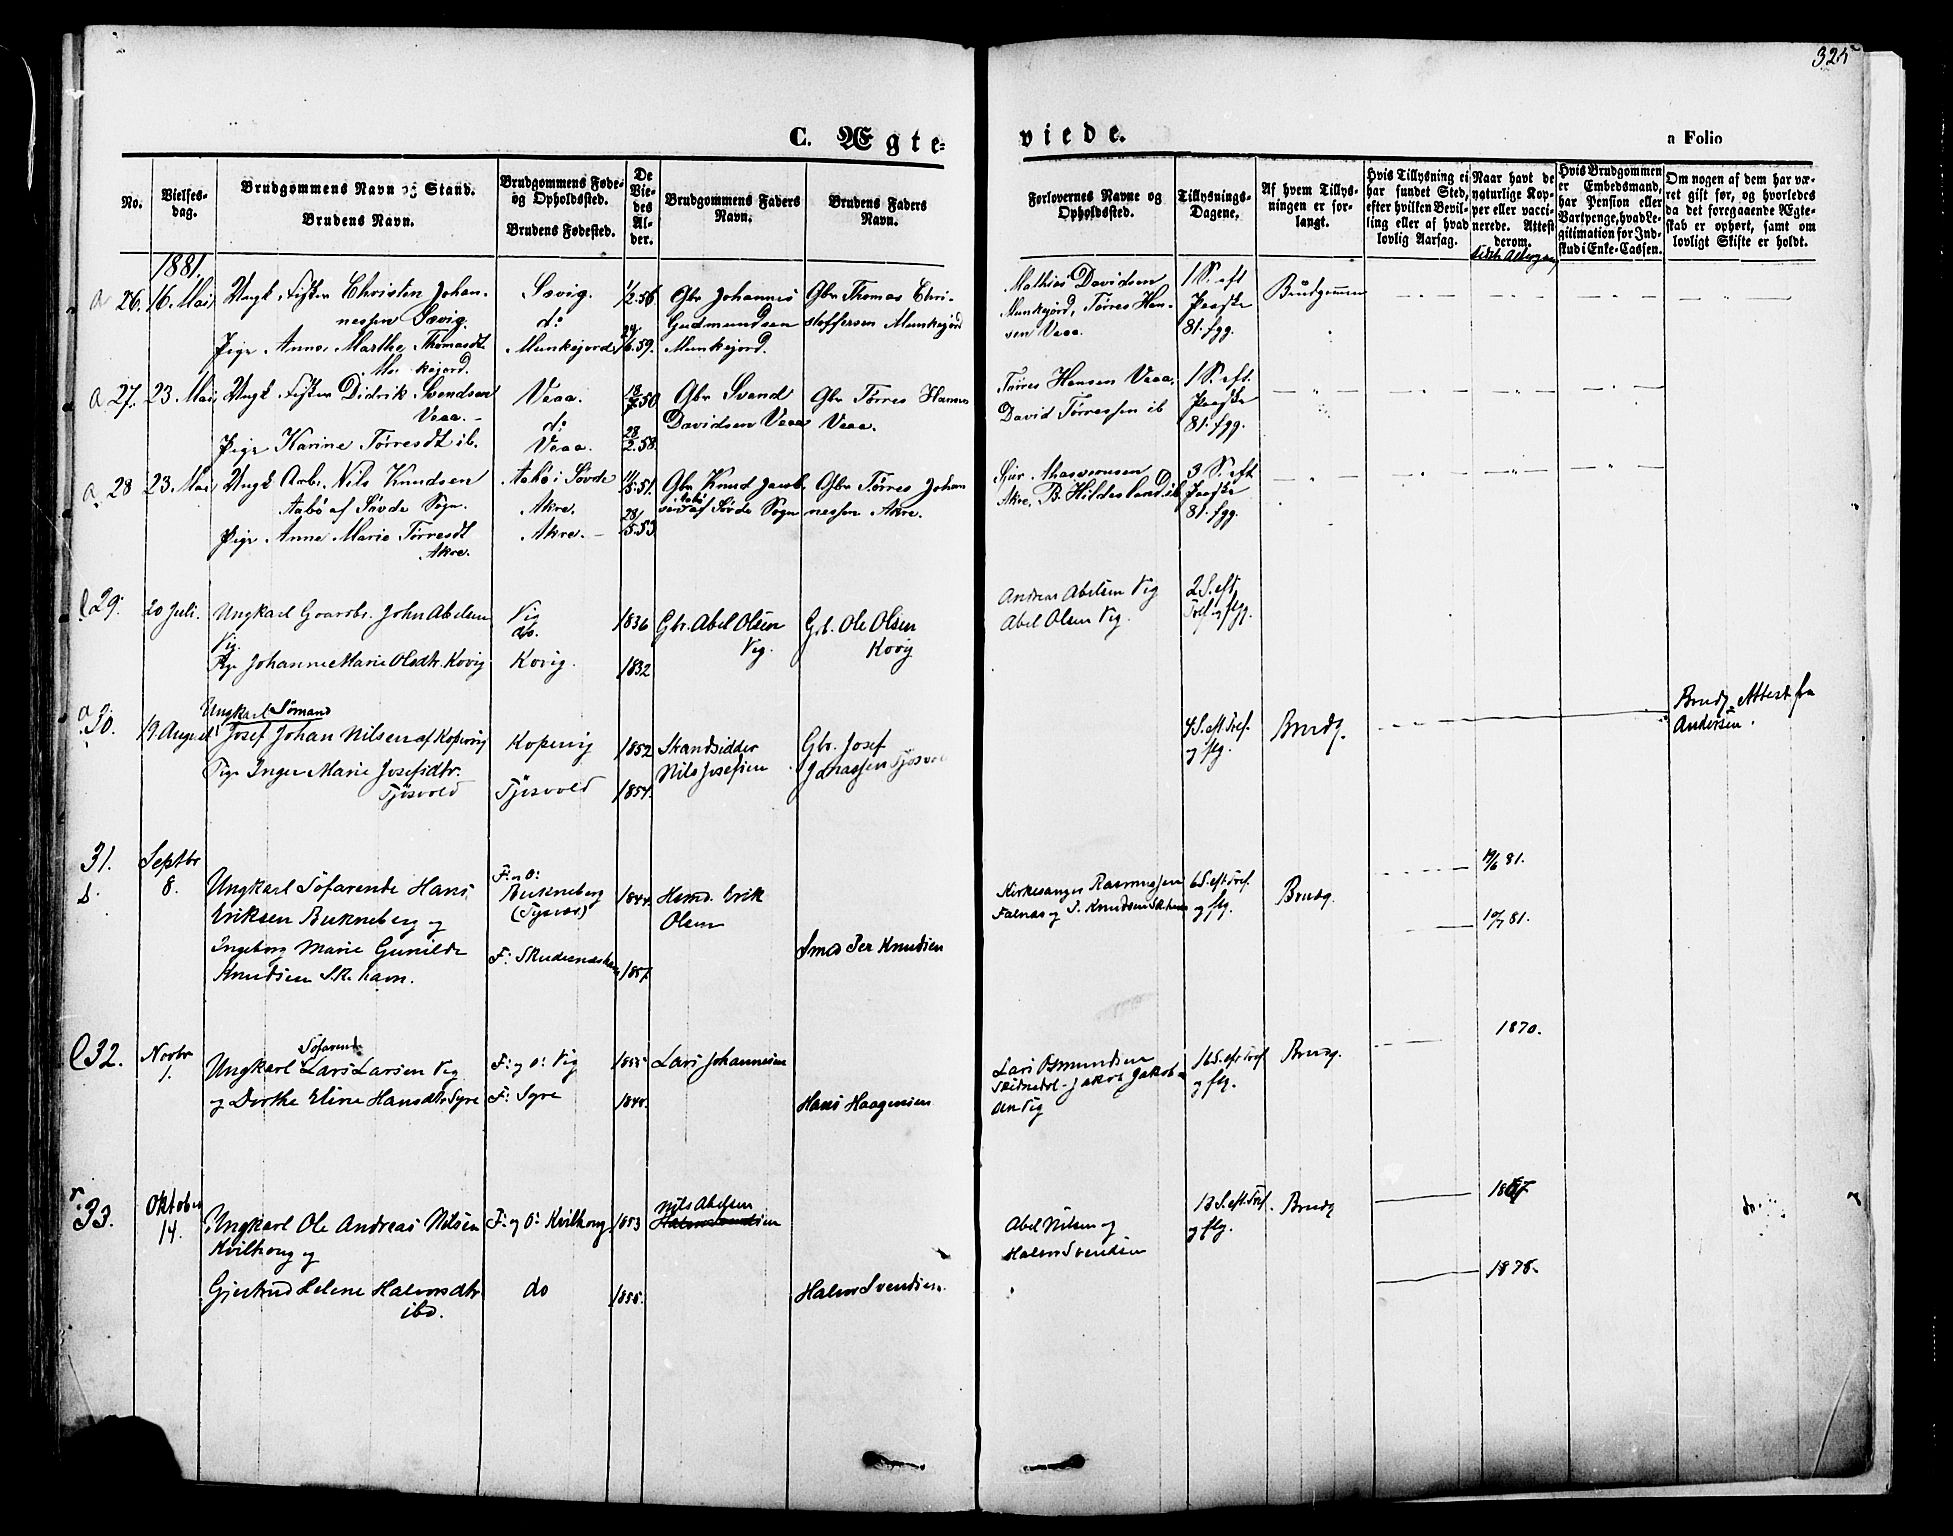 325
C. Ægte-
viede.
a Folio
No.
Vielses-
dag.
Brudgommens Navn og Stand.
Brudens Navn.
Brudgommens Føde-
og Opholdssted.
Brudens Fødested.
De
Vie-
des
Al-
der.
Brudgommens Faders
Navn.
Brudens Faders
Navn.
Forlovernes Navne og
Opholdssted.
Tillysnings-
Dagene.
Af hvem Tillys-
ningen er for-
langt.
Hvis Tillysning ei
har fundet Sted,
efter hvilken Bevil-
ling eller af hvad
lovlig Aarsag.
Naar havt de
naturlige Kop-
per eller vacci-
nerede. Attest
derom.
Hvis Brudgommen
er Embedsmand,
har Pension eller
Vartpenge, hvad Le-
gitimation for Ind-
skud i Enke-Cassen.
Om nogen af dem har væ-
ret gift før, og hvorledes
da det foregaaende Ægte-
skab er ophørt, samt om
lovligt Skifte er holdt.
1881.
a 26. 16. Mai, Ungk. Fisker Christen Johan-
nessen Sævig.
Pige Anne Marthe Thomasdt.
Munkejord.
Sævig.
do
Munkejord.
1/2.56.
24/6.59.
Gbr Johannes
Gudmundsen
Munkejord.
Gbr Thomas Chri-
stoffersen Munkejord
Mathias Davidsen
Munkejord, Tørres Han-
sen Veaa.
1 S. eft
Paaske
81. fgg.
Brudgommen
a 27. 23. Mai, Ungk Fisker Didrik Svendsen
Veaa.
Pige Karine Tørresdt ib.
Veaa.
do
Veaa.
18/7.50.
28/2.58.
Gbr Svend
Davidsen Veaa
Gbr Tørres Hansen
Veaa.
Tørres Hansen Veaa,
David Tørressen ib
1 S. eft.
Paaske
81. fgg.
a 28 23. Mai, Ungk Arb. Nils Knudsen
Aabø af Søvde Sogn.
Pige Anne Marie Tørresdt
Akre.
Aabø i Søvde
Akre.
Akre.
Gbr Knud Jacob-
sen Aabø af Søvde Sogn
Gbr Tørres Johan
nessen Akre.
Akre, B. Hildesland ib
3 S. eft
Paaske
81. fgg.
29. 20 Juli. Ungkarl Gaardbr. John Abelsen
Vig.
Pige Johanne Marie Olsdtr. Kovig
Vig
do.
Kovig.
1836
1832
Gbr. Abel Olsen
Vig.
Gbr. Ole Olsen
Kovig
Andreas Abelsen Vig
Abel Olsen Vig.
2 S. eft
Tref. og flgg.
a 30. 19 August Ungkarl Sømand
Josef Johan Nilsen af Kopervig
Pige Inger Marie Josefsdtr.
Tjøsvold
Kopervig
Tjøsvold
1852
1854.
Strandsidder
Nils Josefsen
Gbr. Josef
Jonassen Tjøsvol
4 S. eft. Tref.
og flg.
Brudg.
Brudg. Attest fra
Andersen.
31. Septbr
8.
Ungkarl Søfarende Hans
Eriksen Bukneberg og
Ingeborg Marie Gunilde
Knudsen Sk.havn.
F: o O:
Bukneberg
(Tysvær)
F: Skudesneshavn
1844.
1857.
Hsmd. Erik
Olsen
Smed Per Knudsen
Kirkesanger Rasmussen
Falnæs og P. Knudsen Sk.havn
6 S. eft. Tref.
og flg.
Brudg.
14/6 81.
10/7 81.
32. Novbr
1.
Ungkarl Søfarende Lars Larsen Vig
og Dorthe Eline Hansdtr. Syre
F: og O: Vig
F: Syre
1855
1844.
Lars Johannesen
Hans Haagensen
Lars Osmundsen
Jakob Jakob-
sen Vig
16 S. eft. Tref
og flg.
Brudg.
1870.
33. Oktober
14.
Ungkarl Ole Andreas Nilsen
Kvilhoug og
Gjertrud Helene Halvorsdtr.
ibd.
F: og O: Kvilhoug
do
1853
1855.
Nils Abelsen
Halvor Svendsen
Halvor Svendsen.
Abel Nilsen og
Halvor Svendsen
13 S. eft. Tref.
og flg.
Brudg
1867
1875.